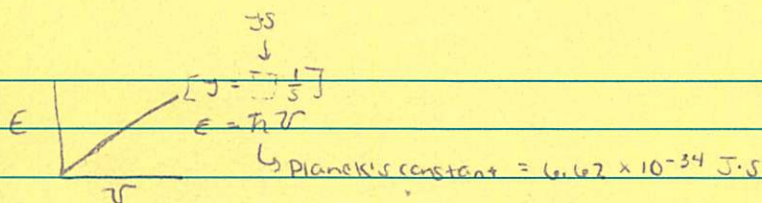 J·S
↓
[J = [ ] 1/s]
E
ε = ħ ν
↳ Planck's constant = 6.62 × 10⁻³⁴ J·S
ν